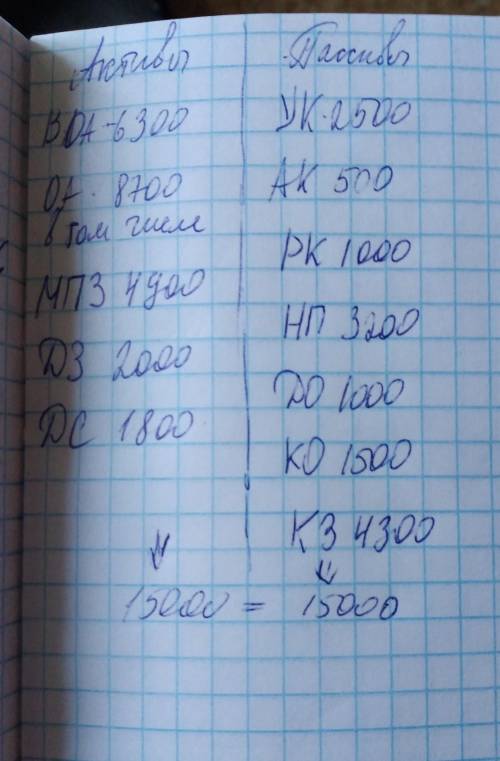 Активы
ВОА - 6300
ОА - 8700
в том числе
МПЗ 4900
ДЗ 2000
ДС 1800
15000 =
Пассивы
УК - 2500
АК 500
РК 1000
НП 3200
ДО 1000
КО 1500
КЗ 4300
15000